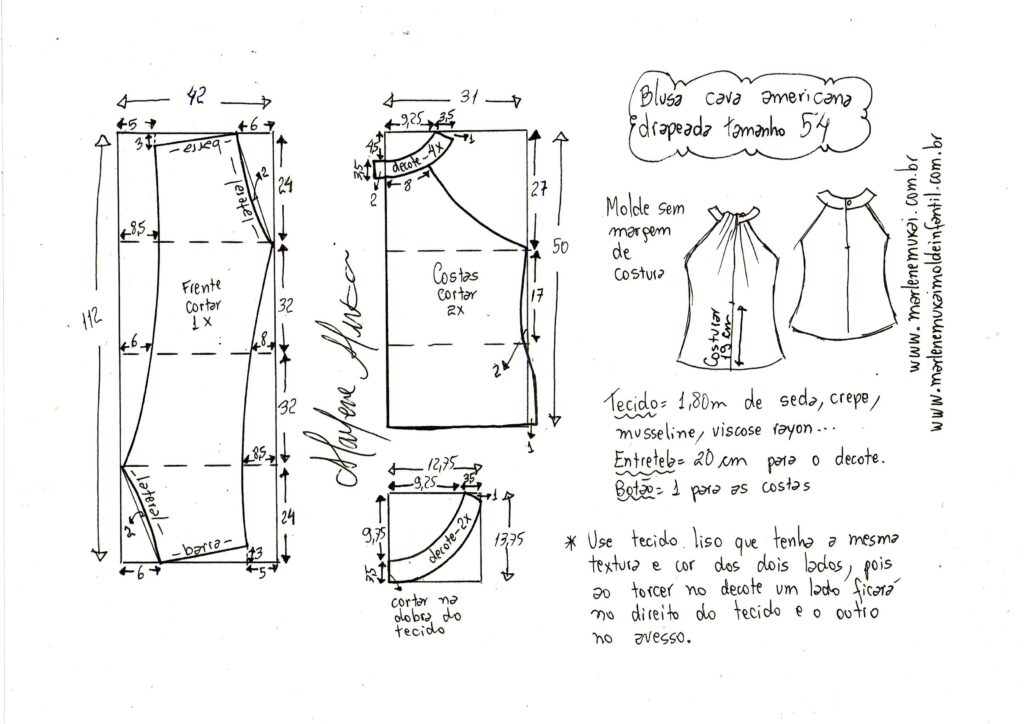 Blusa cava americana
drapeada tamanho 54
42
5
6
3
barra
lateral
2
24
8,5
Frente
cortar
1x
112
32
6
8
32
8,5
lateral
2
24
barra
3
6
5
Marlene Mukai
31
9,25
3,5
1
4,5
3,5
decote-4x
2
8
27
50
Costas
cortar
2x
17
2
1
12,75
9,25
3,5
1
9,75
decote-2x
13,75
3,5
cortar na
dobra do
tecido
Molde sem
margem
de
costura
Costurar
19 cm
www.marlenemukai.com.br
www.marlenemukaimoldeinfantil.com.br
Tecido= 1,80m de seda, crepe,
musseline, viscose rayon...
Entretela= 20 cm para o decote.
Botão= 1 para as costas
* Use tecido liso que tenha a mesma
textura e cor dos dois lados, pois
ao torcer no decote um lado ficará
no direito do tecido e o outro
no avesso.